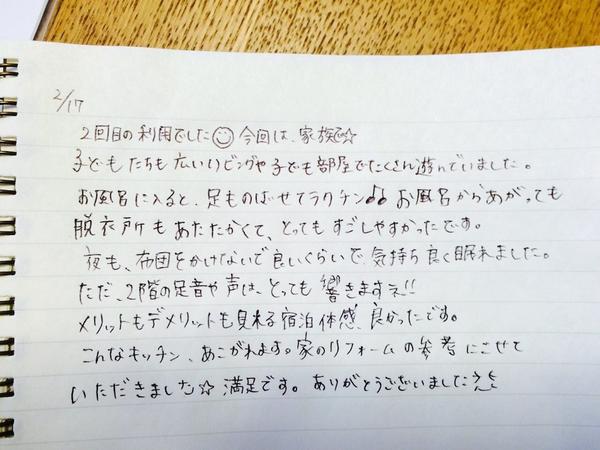 2/17
2回目の利用でした☺今回は、家族で☆
子どもたちも広いリビングや子ども部屋でたくさん遊んでいました。
お風呂に入ると、足ものばせてラクチン♪♪お風呂からあがっても
脱衣所もあたたかくて、とってもすごしやすかったです。
夜も、布団をかけないで良いくらいで気持ち良く眠れました。
ただ、2階の足音や声は、とっても響きますネ!!
メリットもデメリットも見れる宿泊体感、良かったです。
こんなキッチン、あこがれます。家のリフォームの参考にさせて
いただきました☆満足です。ありがとうございました